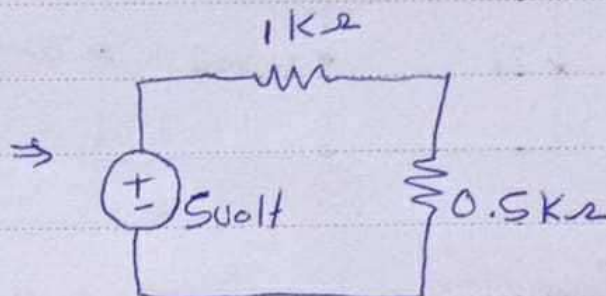 1KΩ
⇒
+
-
5volt
0.5KΩ